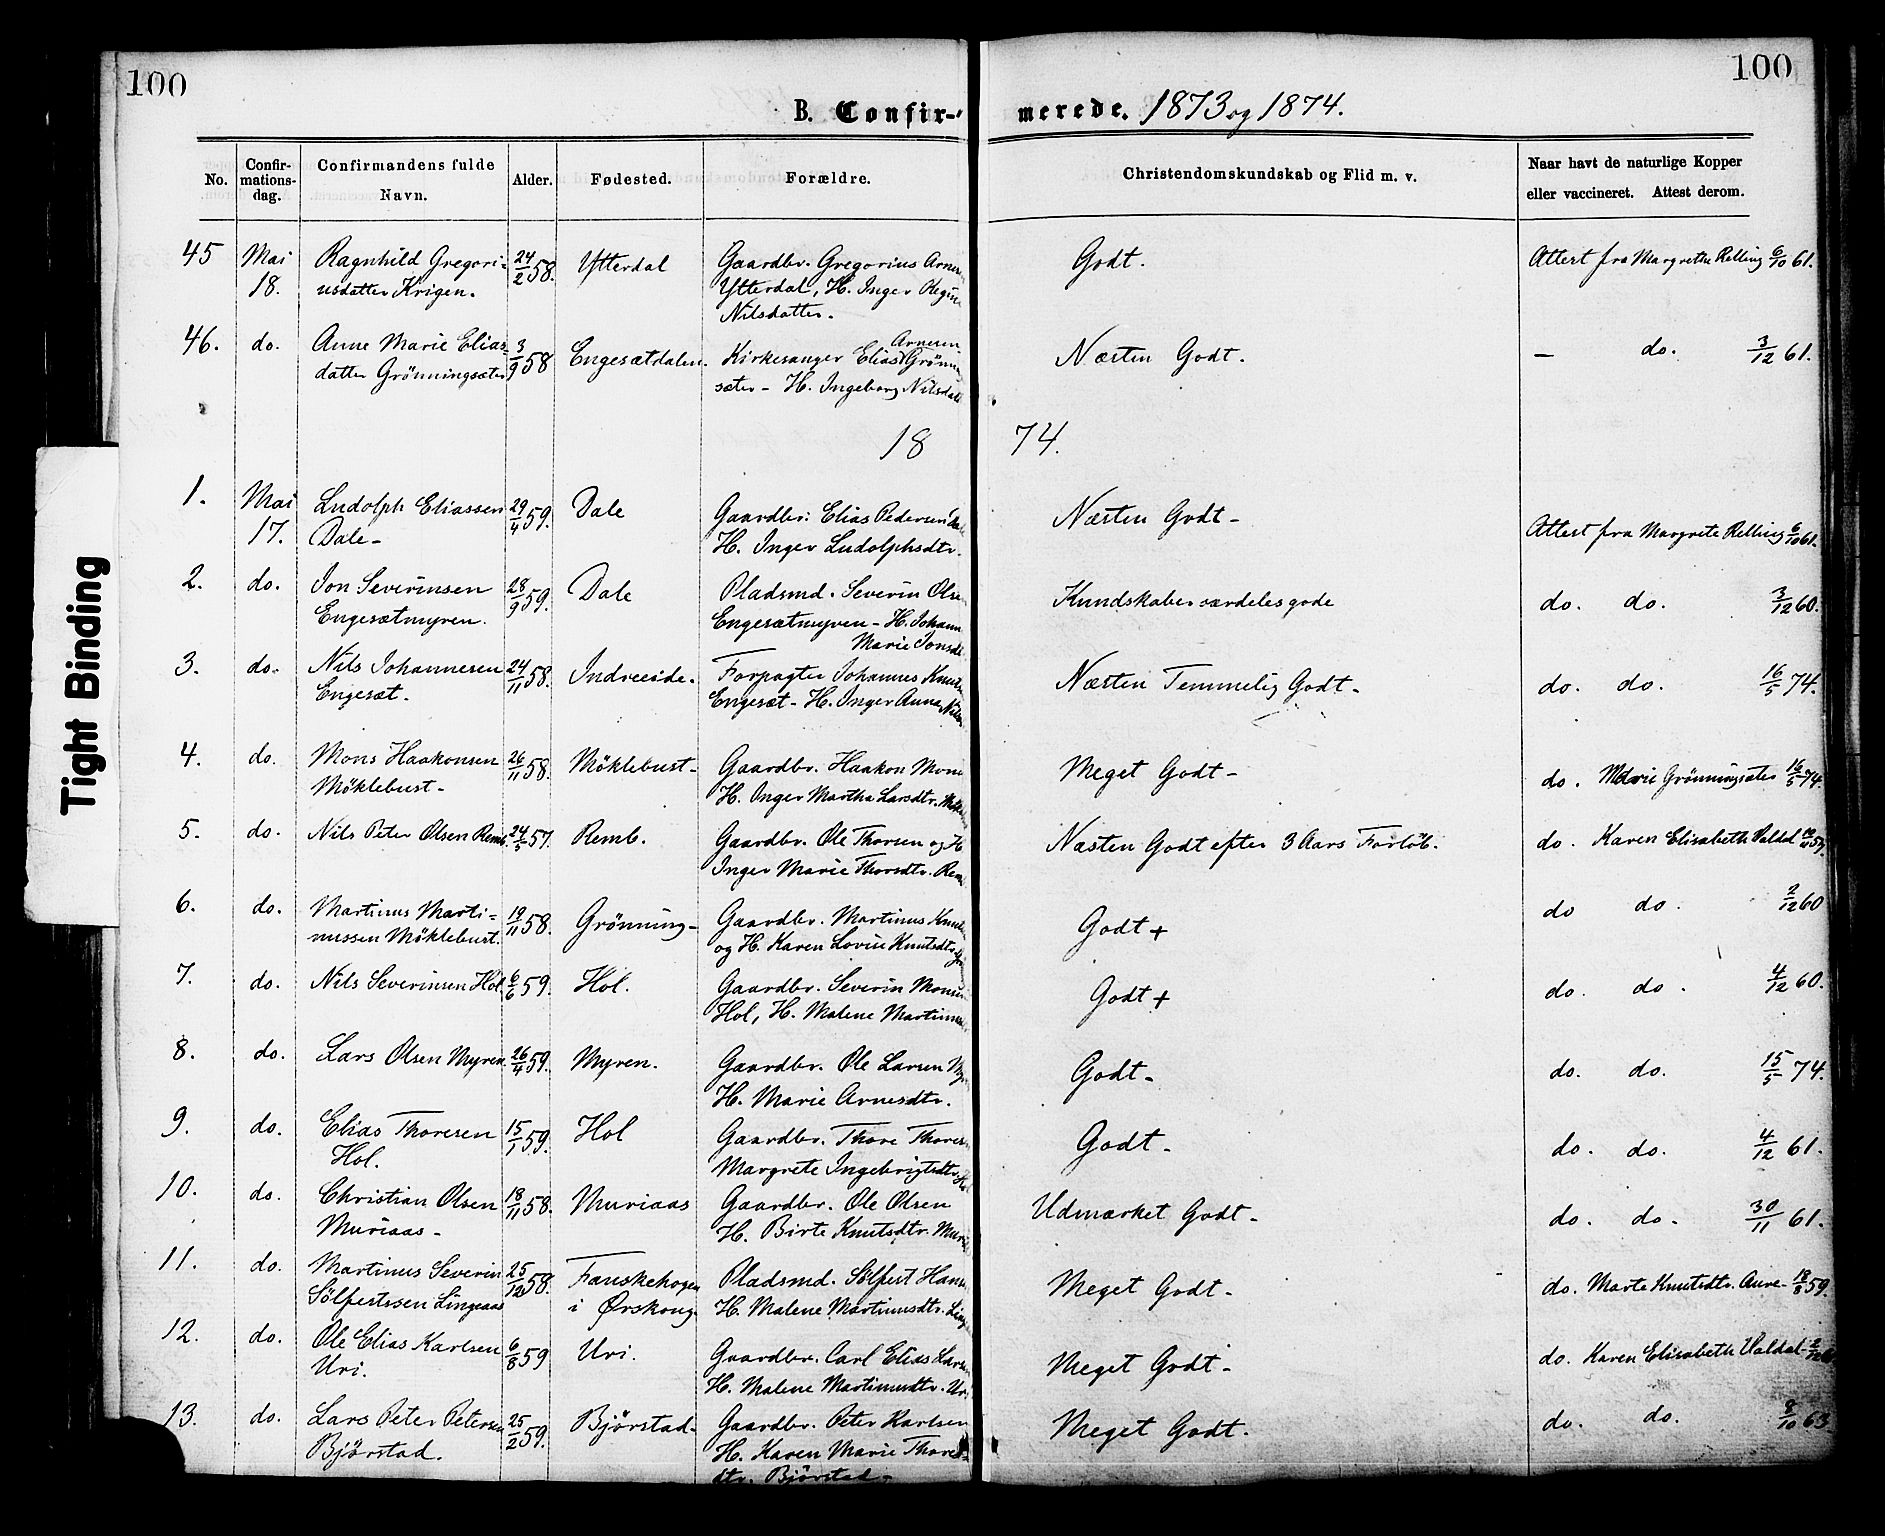 100
100
B. Confir-
merede. 1873 og 1874.
No.
Confir-
mations-
dag.
Confirmandens fulde
Navn.
Alder.
Fødested.
Forældre.
Christendomskundskab og Flid m. v.
Naar havt de naturlige Kopper
eller vaccineret. Attest derom.
45 Mai Ragnhild Gregori- 24/2 58. Ytterdal Gaardbr. Gregorius Arne Godt. Attest fra Margrethe Relling 6/10 61.
18. usdatter Krigen. Ytterdal, H. Inger Regine
Nilsdatter.
46. do. Anne Marie Elias- 3/9 58 Engesætdalen. Kirkesanger Elias Arnesen Grönning Næsten Godt. — do. 3/12 61.
datter Grönningsæter sæter - H. Ingeborg Nilsdatt
18 74.
1. Mai Ludolph Eliassen 29/4 59. Dale Gaardbr. Elias Pedersen Dale Næsten Godt - Attest fra Margrete Relling 6/10 61.
17. Dale - H. Inger Ludolphsdtr.
2. do. Jon Severinsen 28/9 59. Dale Pladsmd. Severin Olse Kundskaber særdeles gode do. do. 3/12 60.
Engesætmyren. Engesætmyren - H. Johann
Marie Jonsdt
3. do. Nils Johannesen 24/11 58. Indreeide. Forpagter Johannes Knuts Næsten Temmelig Godt - do. do. 16/5 74.
Engesæt. Engesæt - H. Inger Anna Nils
4. do. Mons Haakonsen 26/11 58. Möklebust - Gaardbr. Haakon Mons Meget Godt - do. Marie Grönningsæter 16/5 74.
Möklebust - H. Inger Martha Larsdtr. Mökle
5. do. Nils Peter Olsen Remb. 24/5 57. Remb. Gaardbr. Ole Thorsen og H Næsten Godt efter 3 Aars Forløb. do. Karen Elisabeth Valdal
Inger Marie Thorsdtr. Rem
6. do. Martinus Marti- 19/11 58. Grönning - Gaardbr. Martinus Knuts Godt + do do. 2/12 60
nussen Möklebust. og H. Karen Lovise Knutsdtr
7. do. Nils Severinsen Hol. 6/6 59. Hol. Gaardbr. Severin Monsen Godt + do. do. 4/12 60.
Hol, H. Malene Martinus
8. do. Lars Olsen Myren. 26/4 59. Myren. Gaardbr. Ole Larsen Myr Godt - do. do. 15/5 74.
H. Marie Arnesdtr.
9. do. Elias Thoresen 15/1 59. Hol Gaardbr. Thore Thores Godt - do. do. 4/12 61.
Hol. Margrete Ingebrigtsdtr. Hol
10. do. Christian Olsen 18/11 58. Muriaas Gaardbr. Ole Olsen Udmærket Godt - do. do. 30/11 61.
Muriaas - H. Birte Knutsdtr. Muri
11. do. Martinus Severin 25/12 58. Fauskehogen Pladsmd. Sölfest Hans Meget Godt - do. Marte Knutsdtr. Aure - 18/8 59.
Sölfestssen Lingaas i Ørskoug. H. Malene Martinusdtr. Ling
12. do. Ole Elias Karlsen 6/8 59 Uri. Gaardbr. Carl Elias Lars Meget Godt - do. Karen Elisabeth Valdal
Uri. H. Malene Martinusdtr. Uri
13. do. Lars Peter Petersen 25/2 59. Bjørstad - Gaardbr. Peter Karlsen Meget Godt. do. do. 8/10 63.
Bjørstad. H. Karen Marie Thore
dtr. Bjørstad -
Tight Binding